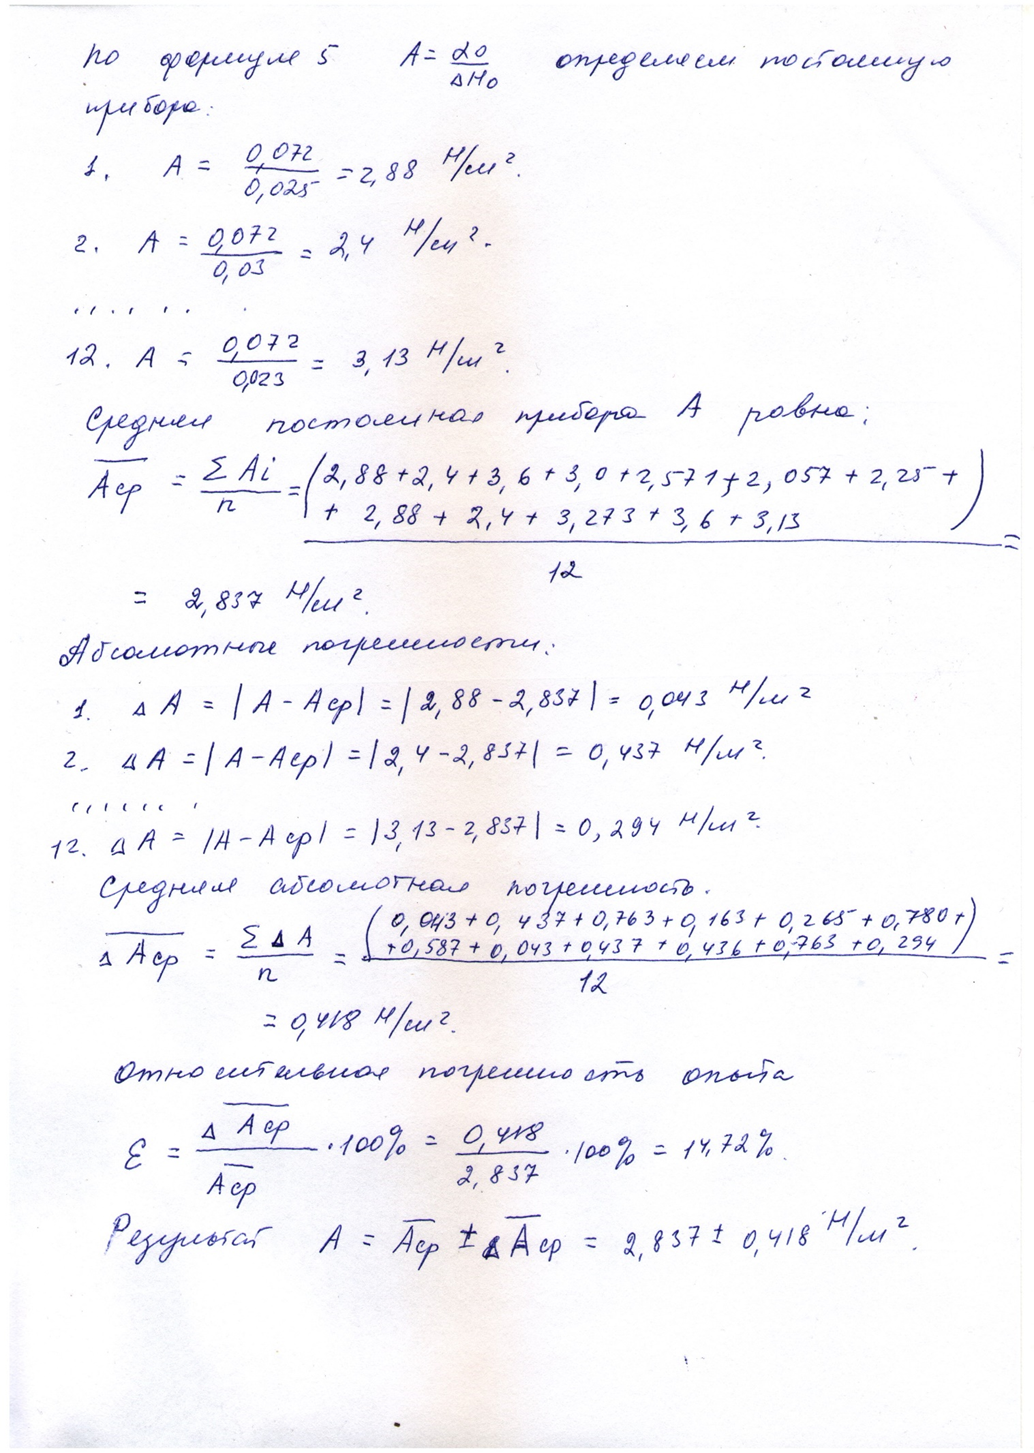 По формуле 5 A = α0 / ΔH0 определяем постоянную
прибора:
1. A = 0,072 / 0,025 = 2,88 Н/м².
2. A = 0,072 / 0,03 = 2,4 Н/м².
......
12. A = 0,072 / 0,023 = 3,13 Н/м².
Средняя постоянная прибора A равна:
Aср = Σ Ai / n = (2,88 + 2,4 + 3,6 + 3,0 + 2,571 + 2,057 + 2,25 +
+ 2,88 + 2,4 + 3,273 + 3,6 + 3,13) / 12 =
= 2,837 Н/м².
Абсолютные погрешности:
1. Δ A = | A - Aср | = | 2,88 - 2,837 | = 0,043 Н/м²
2. Δ A = | A - Aср | = | 2,4 - 2,837 | = 0,437 Н/м².
......
12. Δ A = | A - Aср | = | 3,13 - 2,837 | = 0,294 Н/м².
Средняя абсолютная погрешность.
Δ Aср = Σ Δ A / n = (0,043 + 0,437 + 0,763 + 0,163 + 0,265 + 0,780 +
+ 0,587 + 0,043 + 0,437 + 0,436 + 0,763 + 0,294) / 12 =
= 0,418 Н/м².
Относительная погрешность опыта
ε = Δ Aср / Aср · 100% = 0,418 / 2,837 · 100% = 14,72%.
Результат A = Aср ± Δ Aср = 2,837 ± 0,418 Н/м².